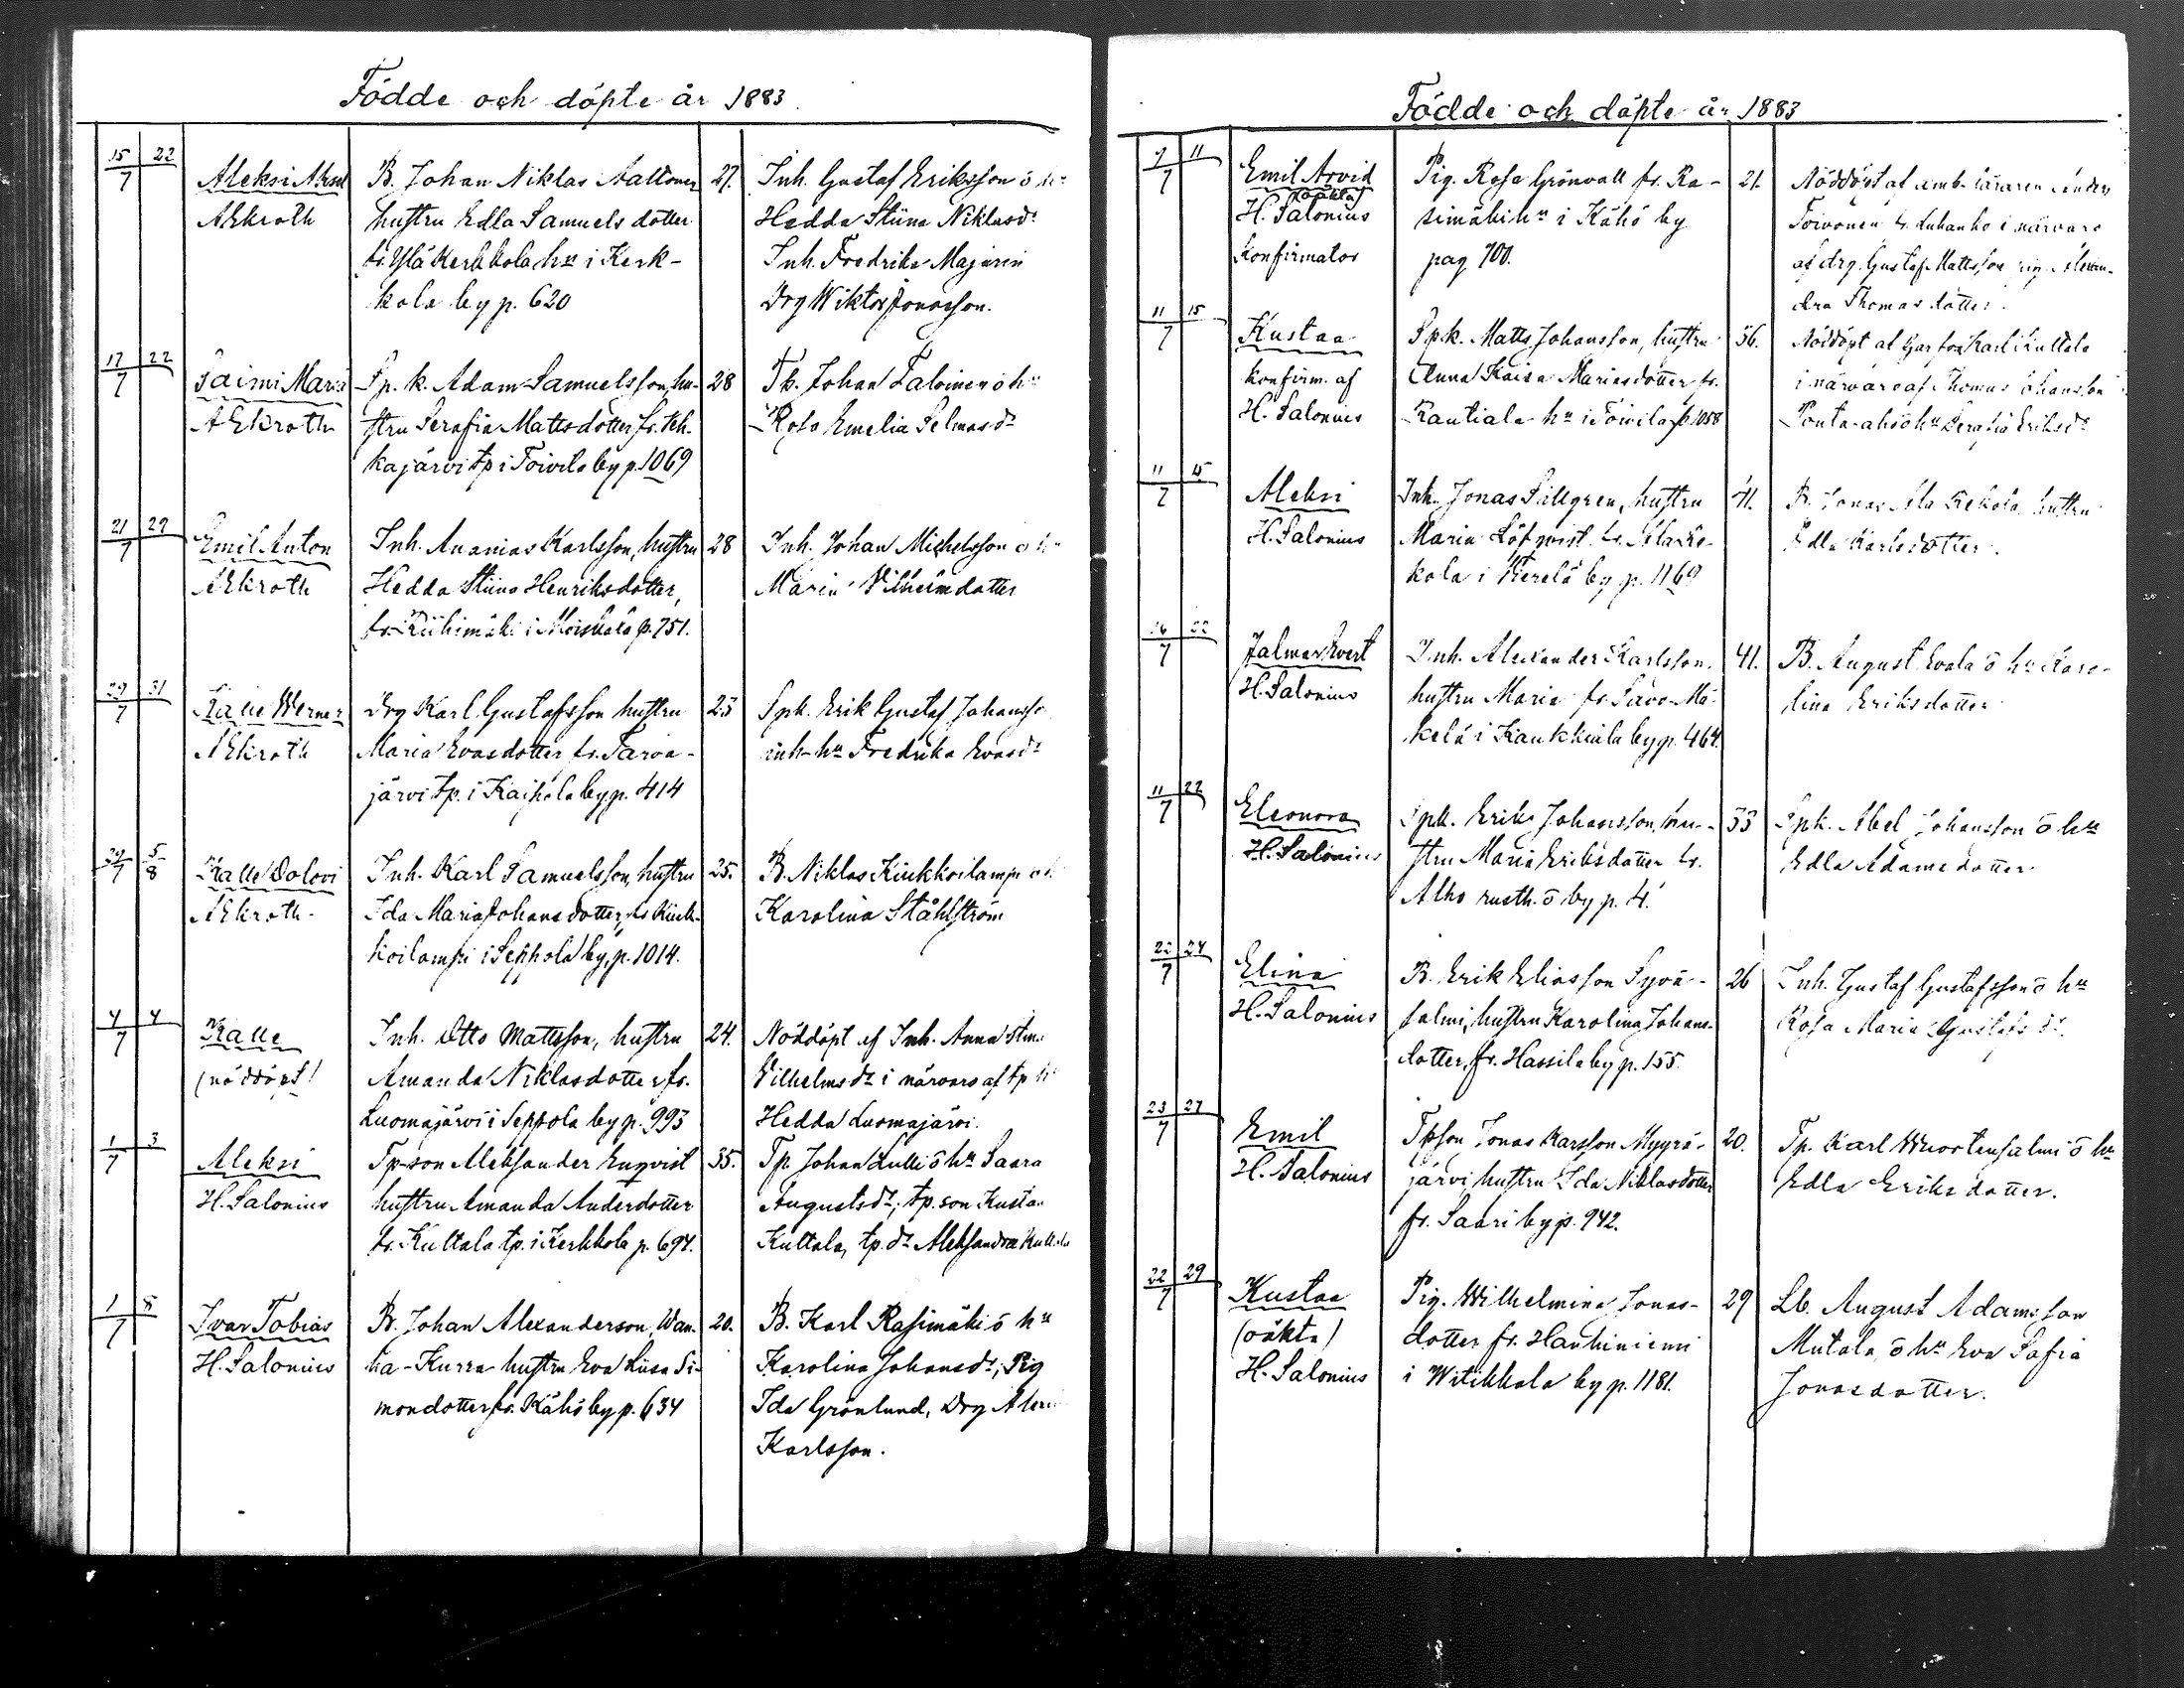 Födde och döpte år 1883.
15/7 22 Aleksi Aksel B. Johan Niklas Aaltonen 27. Inh. Gustaf Eriksson o hu
A Ekroth hustru Edla Samuels dotter Hedda Stiina Niklasdr
fr. Ylä Kerkkola hn i Kerk- Inh. Fredrika Majurin
kola by p. 620 Drg Wiktor Jonasson.
17/7 22 Saimi Maria Sp. k. Adam Samuelsson, hu- 28 Tp. Johan Taloinen o hu
A Ekroth stru Serafia Mattsdotter fr. Rosa Emelia Selmasdr
kajärvi tp i Toivila by p. 1069
21/7 29 Emil Anton Inh. Ananias Karlsson, hustru 28 Inh. Johan Michelsson o hu
A Ekroth Hedda Stiina Henriksdotter, Maria Vilhelmdotter
fr. Riihimäki i Moiskala p. 751.
29/7 31 Kalle Werner Drg Karl Gustafsson hustru 23 Spk. Erik Gustaf Johansso
A Ekroth Maria Evasdotter fr. Tarva- inh-hn Fredrika Evasdr
järvi tp. i Kaipola by p. 414
29/7 5/8 Kalle Oolovi Inh. Karl Samuelsson, hustru 25. B. Niklas Kiukkoilampi o h
A Ekroth. Ida Maria Johansdotter, fr Kiuk- Karolina Ståhlström
koilampi i Seppola by, p. 1014.
4/7 4 Kalle Inh. Otto Mattsson, hustru 24. Nöddöpt af Inh. Anna Stina
(nöddöpt) Amanda Niklasdotter fr. Vilhelmsdr i närvaro af tp hn
Luomajärvi i Seppola by p. 993 Hedda Luomajärvi.
1/7 3 Aleksi Tp-son Aleksander Enqvist 35. Tp. Johan Lulli o hu Saara
H. Salonius hustru Amanda Andersdotter Augustsdr; tp. son Kustaa
fr. Kuttala tp. i Kerkkola p. 694. Kuttala, tp. dr Aleksandra Kuttala
1/7 8 Ivar Tobias B. Johan Alexanderson, Wan- 20. B. Karl Rasimäki o hu
H. Salonius ha-Kurra hustru Eva Liisa Si- Karolina Johansdr; Pig
mondotter fr. Kähö by p. 634 Ida Grönlund, Drg Alexi
Karlsson.
Födde och döpte år 1883
7/7 11 Emil Arvid Pig. Rosa Grönvall fr. Ra- 21. Nöddöpt af amb. läraren Anders
(oäkta)
H. Salonius simäki hn i Kähö by Toivonen fr. Luhanko i närvaro
konfirmator pag 700. af drg. Gustaf Mattsson pig. Alexan-
dra Thomasdotter.
11/7 15 Kustaa Spk. Matts Johansson, hustru 36. Nöddöpt af Karl Kuttala
konfirm. af Anna Kaisa Mariasdotter fr. i närvaro af Thomas Johansson
H. Salonius Rautiala hn i Toivila p 1058 o hu Serafia Eriksdr
11/7 15 Aleksi Inh. Jonas Sillgren, hustru 41. B. Jonas Ala Kekola hustru
H. Salonius Maria Löfqvist fr. Ala Ke- Edla Karlsdotter.
kola i Kerelä by p. 1169
16/7 22 Jalmar Evert Inh. Alexander Karlsson. 41. B. August Evala o hu Karo-
H. Salonius hustru Maria fr. Savo-Mä- lina Eriksdotter
kelä i Kaukkiala by p. 464.
11/7 22 Eleonora Spk. Erik Johansson, hu- 33 Spk. Abel Johansson o hu
H. Salonius stru Maria Eriksdotter fr. Edla Adamsdotter
Alho rusth. o by p. 4.
22/7 24 Elina B. Erik Eliasson Syvä- 26 Inh. Gustaf Gustafsson o hu
H. Salonius salmi, hustru Karolina Johans- Rosa Maria Gustafs dr.
dotter, fr. Hassila by p. 155.
23/7 27 Emil Tpson Jonas Karsson Myyrä- 20. Tp. Karl Wuortensalmi o hu
H. Salonius järvi, hustru Ida Niklasdotter Edla Eriksdotter.
fr. Saari by p. 942.
22/7 29 Kustaa Pig. Wilhelmina Jonas- 29 Lb. August Adamsson
(oäkta) dotter fr. Hanhiniemi Mutala, o hu Eva Sofia
H. Salonius i Witikkala by p. 1181. Jonasdotter.